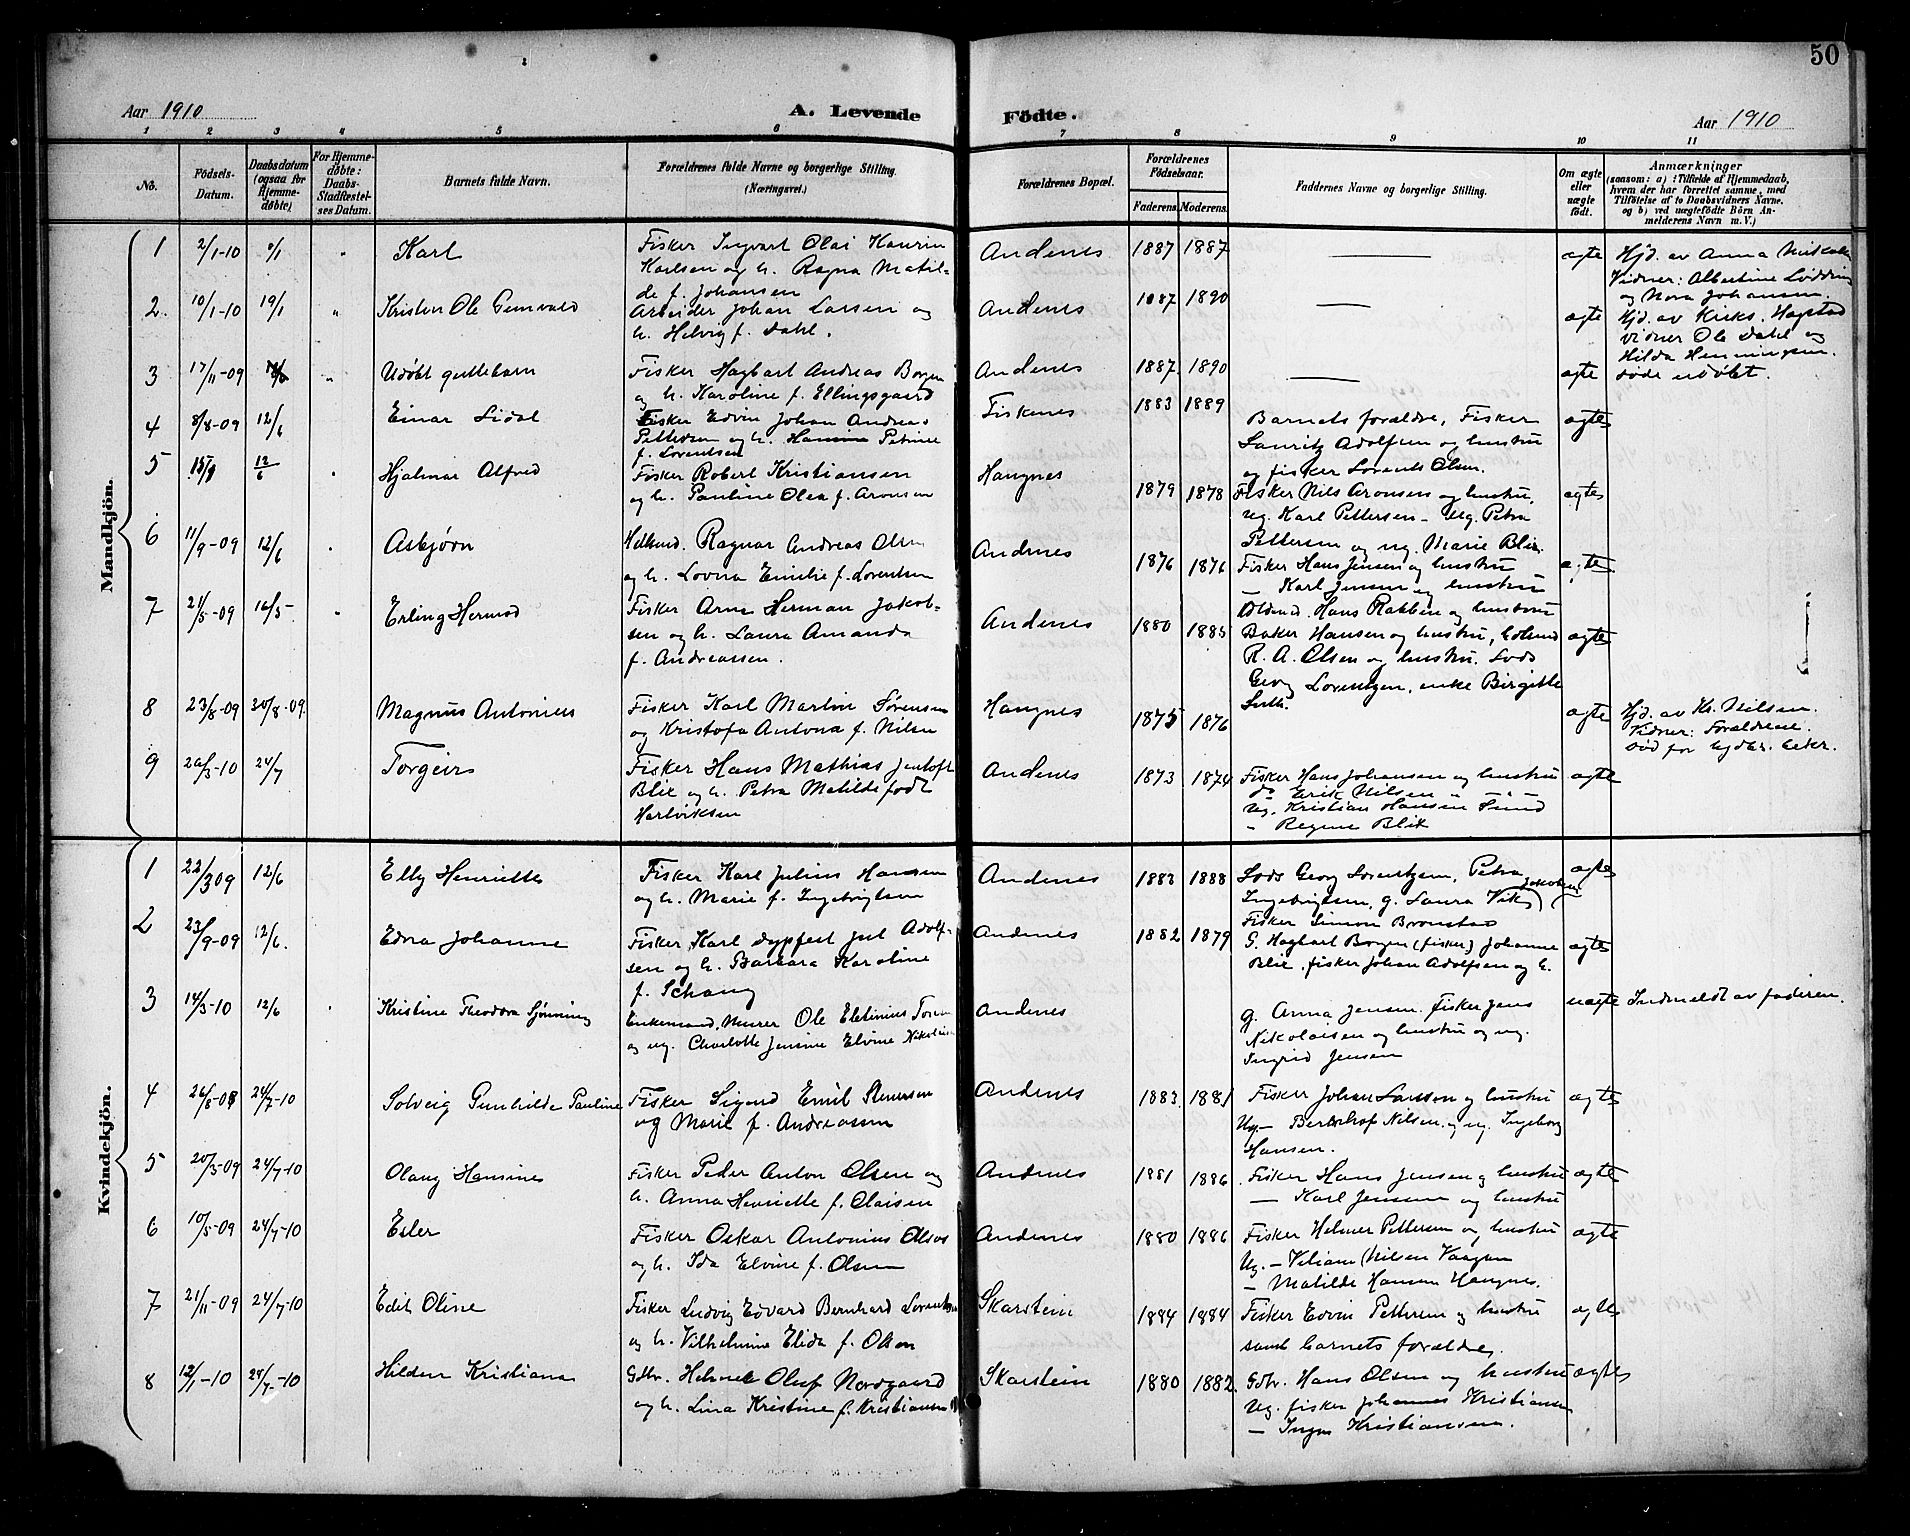 50
Aar 1910
A. Levende Födte.
Aar 1910
1 2 3 4 5 6 7 8 9 10 11
No.
Födsels-Datum.
Daabsdatum (ogsaa for Hjemme-döbte).
For Hjemme-döbte: Daabs-Stadfæstel-ses Datum.
Barnets fulde Navn.
Forældrenes fulde Navne og borgerlige Stilling. (Næringsvei.)
Forældrenes Bopæl.
Forældrenes Födselsaar.
Faderens. Moderens.
Faddernes Navne og borgerlige Stilling.
Om ægte eller uægte födt.
Anmærkninger
(saasom: a) i Tilfælde af Hjemmedaab,
hvem der har forrettet samme, med
Tilföielse af to Daabsvidners Navne,
og b) ved uægtefödte Börn An-
melderens Navn m. V.)
Mandkjön.
1 2/1-10 Karl
Fisker Ingvart Olai Hanrin
Karlsen og h. Ragna Matil-
de f. Johansen
Andenes 1887 1887 ægte
Hjd. av Anna
Vidner: Albertine
og Nora Johansen
2 10/1-10 19/1 Kristen Ole Gunvald
Arbeider Johan Larsen og
h. Helvig f. Dahl.
Andenes 1887 1890 ægte
Hjd. av Kirks. Hagstad
vidner Ole Dahl og
Hilda Henningsen.
3 17/11-09 Udøbt guttebarn
Fisker Hagbart Andreas Borgen
og h. Karoline f. Ellingsgaard
Andenes 1887 1890 ægte
døde udøbt.
4 8/8-09 12/6 Einar Sidal
Fisker Edvin Johan Andreas
Pettersen og h. Hanna Petrine
f. Lorentsen
Fiskenes 1883 1889
Barnets forældre, Fisker
Lauritz Adolfsen og hustru
og fisker Lorents Olsen.
ægte
5 12/6 Hjalmar Alfred
Fisker Robert Kristiansen
og h. Pauline Olea f. Aronsen
Haugnes 1879 1878
Fisker Nils Aronsen og hustru,
ug. Karl Pettersen - ug. Petra
Pettersen og ug. Marie Blix.
ægte
6 11/9-09 12/6 Asbjørn
Ragnar Andreas Olsen
og h. Lovna Emilie f. Lorentsen
Andenes 1876 1876
Fisker Hans Jensen og hustru
- Karl Jensen og hustru
Hans Rabben og hustru
ægte
7 21/5-09 16/5 Erling Hermod
Fisker Arne Herman Jakob-
sen og h. Laura Amanda
f. Andreassen.
Andenes 1880 1885
Baker Hansen og hustru,
R. A. Olsen og hustru. Lods
Georg Lorentzen, enke Birgitte
ægte
8 23/8-09 30/8-09 Magnus Antonius
Fisker Karl Martin Sørensen
og Kristofa Antona f. Nilsen
Haugnes 1875 1876 ægte
Hjd. av Kr. Nilsen.
Vidner: Forældrene.
død før
9 20/3-10 24/7 Torgeirs
Fisker Hans Mathias Jentoft
Blix og h. Petra Matilde født
Hartviksen
Andenes 1873 1874
Fisker Hans Johansen og hustru
do Erik Nilsen
Ug. Kristian Hansen Sund
- Regine Blix
ægte
Kvindekjön.
1 22/3 09 12/6 Elly Henriette
Fisker Karl Julius Hansen
og h. Marie f. Ingebrigtsen
Andenes 1883 1888
Lods Georg Lorentzen, Petra
Ingebrigtsen, g. Laura Vik
Fisker Simon Bronstad
ægte
2 23/9-09 12/6. Edna Johanne
Fisker Karl Dypfest Jul Adolf-
sen og h. Barbara Karoline
f. Schang
Andenes 1882 1879
G. Hagbart Borgen (fisker) Johanne
Blix, fisker Johan Adolfsen og h.
ægte
3 14/3-10 12/6 Kristine Theodora Sjønning
Enkemand, Murer Ole Eletinius
og ug. Charlotte Jensine Elvine
Andenes
g. Anna Jensen. Fisker Jens
Nikolaisen og hustru og ug.
Ingrid Jensen
uægte Indmeldt av faderen.
4 26/8-08 24/7-10 Solveig Gunhilde Pauline
Fisker Sigurd Emil
og Marie f. Andreassen
Andenes 1883 1881
Fisker Johan Larsson og hustru
Ug.- Nilsen og ug. Ingeborg
Hansen.
ægte
5 20/3-09 24/7-10 Olaug Hansine
Fisker Peder Anton Olsen og
h. Anna Henriette f. Claisen
Andenes 1881 1886
Fisker Hans Jensen og hustru
- Karl Jensen og hustru
ægte
6 10/5-09 24/7-10 Ester
Fisker Oskar Antonius Olsen
og h. Ida Elvine f. Olsen
Andenes 1880 1886
Fisker Helmer Pettersen og hustru
Ug. - Viliam Nilsen Vaagan
- Matilde Hansen Haugnes.
ægte
7 21/11-09 24/7-10 Edit Oline
Fisker Ludvig Edvard Bernhard Lorentsen
og h. Vilhelmine Elida f. Olsen
Skarstein 1884 1884
Fisker Edvin Pettersen og hustru
samt barnets forældre.
ægte
8 12/1-10 24/7-10 Hildur Kristiane
Gdbr. Helmer Oluf Nordgaard
og h. Lina Kristine f. Kristiansen
Skarstein 1880 1882.
Gdbr. Hans Olsen og hustru
Ug. fisker Johannes Kristiansen
- Inga Kristiansen.
ægte